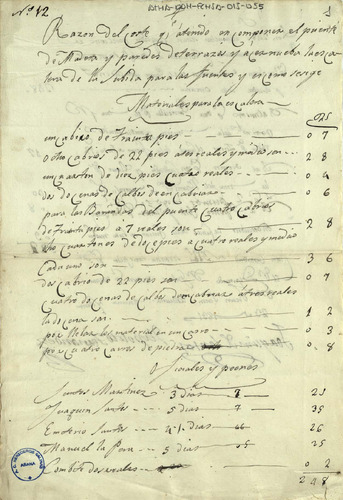 Nº 12
AIHA-DOH-RCHIA-015-055
1
Razon del Coste q a tenido en componer el puente
de Madera y paredes de terrazas y acer nueba la esca
lera de la Subida para las fuentes y es como sesige
Materiales para la escalera
un cabrio de treinta pies --- 0 7
ocho cabrios de 22 pies a tres reales y medio son -- 2 8
un quarton de diez pies cuatro reales --- 0 4
dos docenas de Calbos de encabriar --- 0 6
para las Barandas del puente cuatro cabrios
de treinta pies a 7 reales son --- 2 8
cuartones de doce pies a cuatro reales y medio
Cada uno son --- 3 6
dos cabrios de 22 pies son --- 0 7
cuatro docenas de calbos de encabriar a tres reales
la docena son --- 1 2
por llebar los materiales en un carro --- 0 3
por cuatro carros de piedra --- 0 8
oficiales y peones
Santos Martinez -- 3 dias -- 25
Joaquin Santos -- 5 dias -- 7 -- 35
Emeterio Santos -- 4 dias -- 26
Manuel la Pera -- 5 dias -- 25
Combite dos reales --- 0 2
2 4 8
ABAÑA